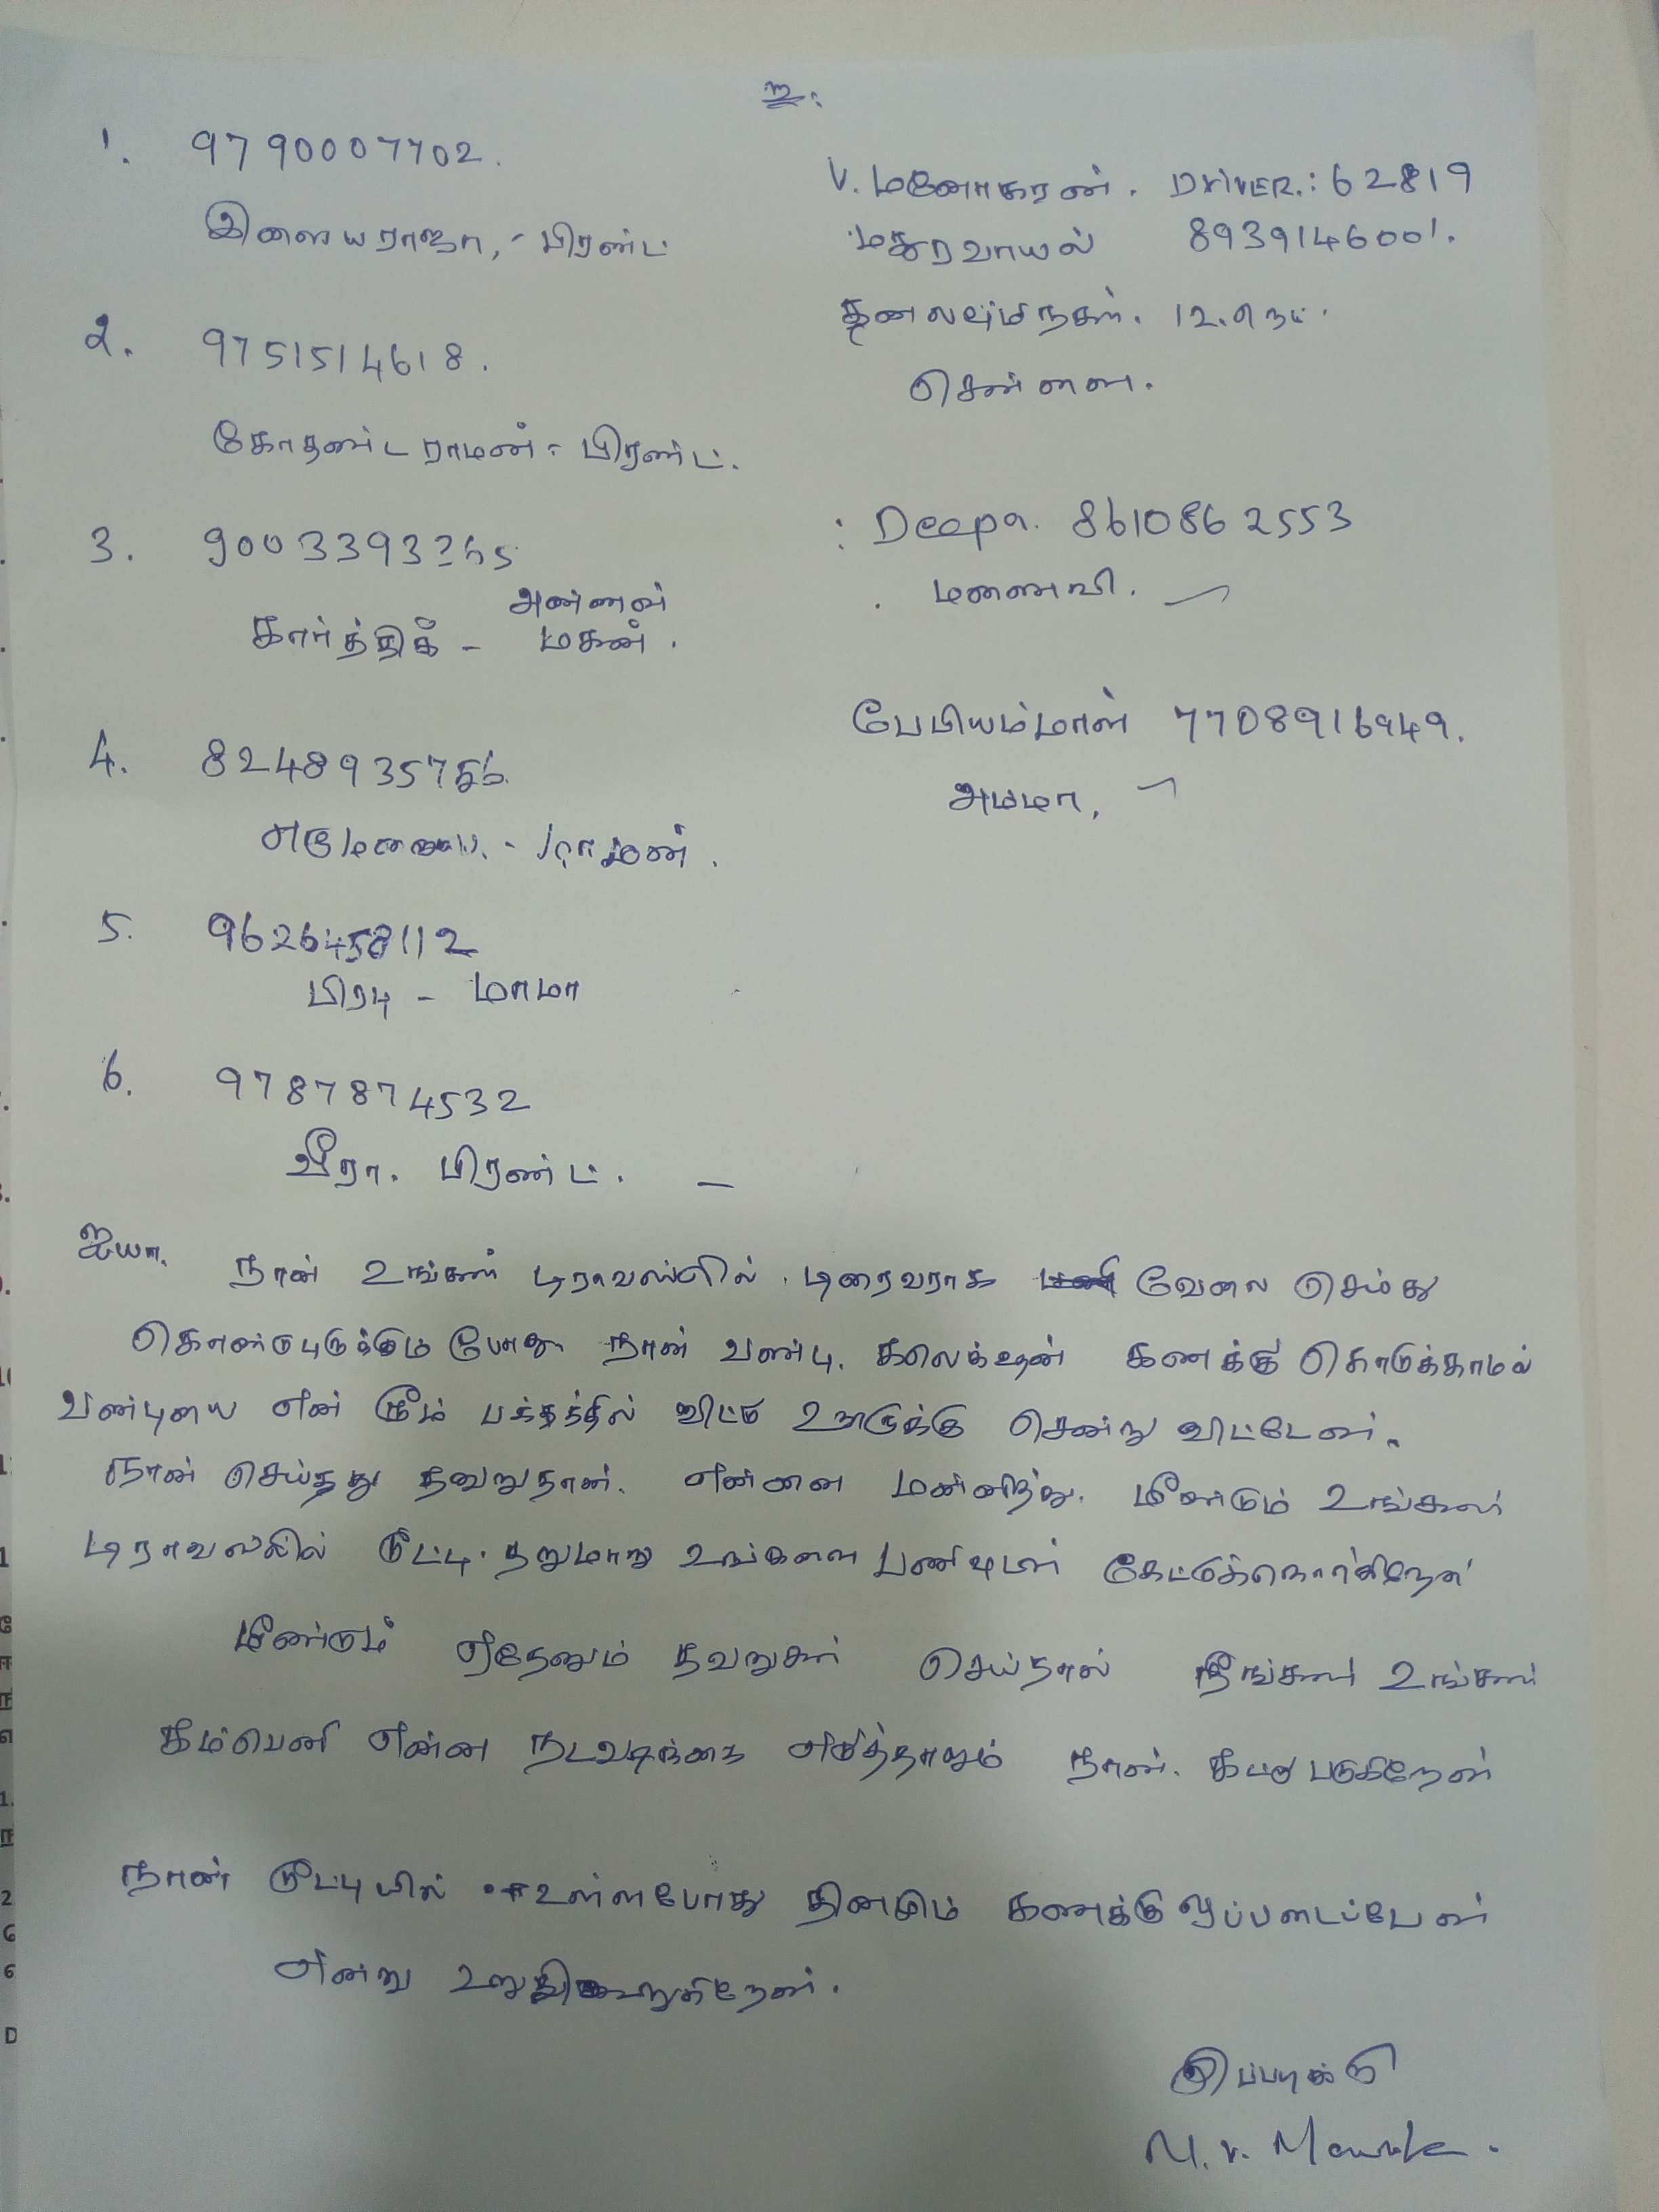 உ
1. 9790007702.
இளையராஜா, - பிரண்ட்
2. 9751514618.
கோதண்டராமன் - பிரண்ட்.
3. 9003393265
அண்ணன்
கார்த்திக் - மகன்.
4. 8248935756
5. 9626458112
பிரபு - மாமா
6. 9787874532
வீரா. பிரண்ட். -
V. மனோகரன். DRIVER.: 62819
மதுரவாயல் 8939146001.
தனலஷ்மிநகர். 12.தெ
சென்னை.
: Deepa. 8610862553
மனைவி.
பேபியம்மாள் 7708916949.
அம்மா,
ஐயா, நான் உங்கள் டிராவல்ஸில். டிரைவராக வேலை செய்து
கொண்டிருக்கும் போது நான் வண்டி. கலெக்ஷன் கணக்கு கொடுக்காமல்
வண்டியை என் ரூம் பக்கத்தில் விட்டு ஊருக்கு சென்று விட்டேன்.
நான் செய்தது தவறுதான். என்னை மன்னித்து. மீண்டும் உங்கள்
டிராவல்ஸில் டூட்டி. தறுமாறு உங்களை பணிவுடன் கேட்டுக்கொள்கிறேன்
மீண்டும் ஏதேனும் தவறுகள் செய்தால் நீங்கள் உங்கள்
கம்பெனி என்ன நடவடிக்கை எடுத்தாலும் நான். கட்டுபடுகிறேன்
நான் டூட்டியில் உள்ளபோது தினமும் கணக்கு ஒப்படைப்பேன்
என்று உறுதிகூறுகிறேன்.
இப்படிக்கு
M.V.